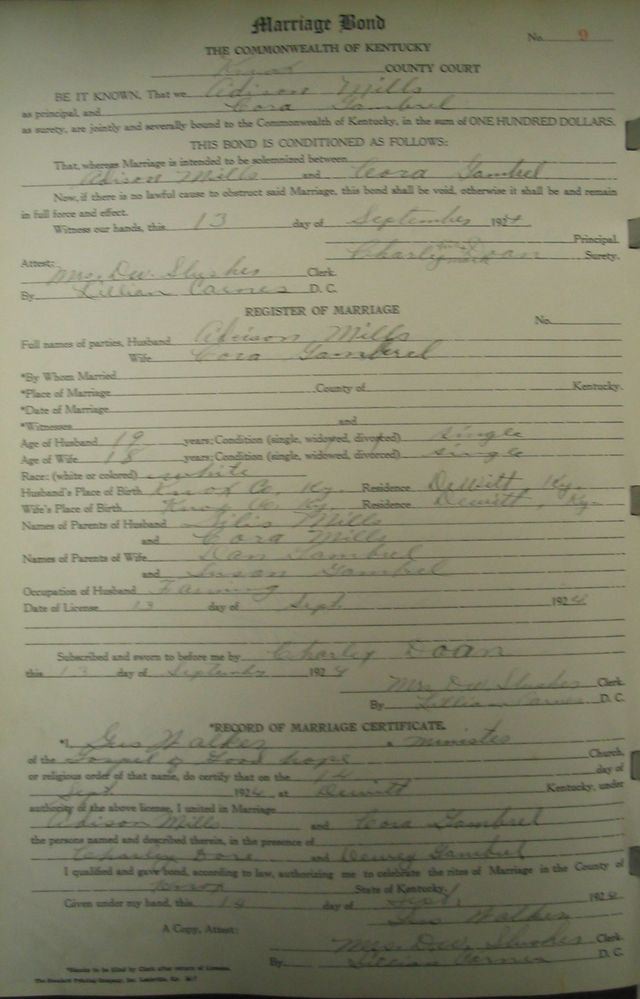 Marriage Bond
No. 9
THE COMMONWEALTH OF KENTUCKY
Knox COUNTY COURT
BE IT KNOWN, That we Adison Mills
as principal, and Cora Gambrel
as surety, are jointly and severally bound to the Commonwealth of Kentucky, in the sum of ONE HUNDRED DOLLARS.
THIS BOND IS CONDITIONED AS FOLLOWS:
That, whereas Marriage is intended to be solemnized between
Adison Mills and Cora Gambrel
Now, if there is no lawful cause to obstruct said Marriage, this bond shall be void, otherwise it shall be and remain
in full force and effect.
Witness our hands, this 13 day of September 1924
Principal.
Charley Doan Surety.
Attest:
Mrs. D.W. Slusher Clerk.
By Lillian Carnes D. C.
REGISTER OF MARRIAGE
No.
Full names of parties, Husband Adison Mills
Wife Cora Gambrel
*By Whom Married
*Place of Marriage County of Kentucky.
*Date of Marriage
*Witnesses and
Age of Husband 19 years; Condition (single, widowed, divorced) single
Age of Wife 18 years; Condition (single, widowed, divorced) single
Race: (white or colored) white
Husband's Place of Birth Knox Co. Ky. Residence DeWitt, Ky.
Wife's Place of Birth Knox Co. Ky. Residence Dewitt, Ky.
Names of Parents of Husband Mills
and Cora Mills
Names of Parents of Wife Dan Gambrel
and Susan Gambrel
Occupation of Husband Farming
Date of License 13 day of Sept 1924
Subscribed and sworn to before me by Charley Doan
this 13 day of September 1924
Mrs. D.W. Slusher Clerk.
By Lillian Carnes D. C.
*RECORD OF MARRIAGE CERTIFICATE.
*I, Gus Walker a minister
of the Gospel of Good hope Church,
or religious order of that name, do certify that on the 14 day of
Sept. 1924 at Dewitt Kentucky, under
authority of the above license, I united in Marriage
Adison Mills and Cora Gambrel
the persons named and described therein, in the presence of
Charley and Dewey Gambrel
I qualified and gave bond, according to law, authorizing me to celebrate the rites of Marriage in the County of
Knox State of Kentucky.
Given under my hand, this 14 day of Sept. 1924
Gus Walker
A Copy, Attest:
Mrs. D.W. Slusher Clerk
By Lillian Carnes D. C.
*Blanks to be filled by Clerk after return of License.
The Standard Printing Company, Inc. Louisville, Ky.